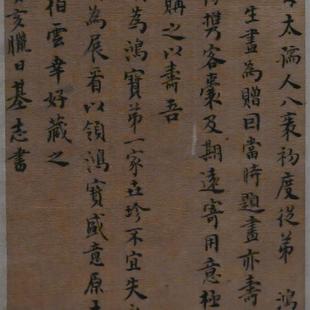 太孺人八袠初度從弟鴻
生畫為贈回當時題畫亦壽
携客槖及期遠寄用意極
購之以壽吾
為鴻寶弟一家世珍不宜失
為展看以領鴻寶盛意原
指雲幸好藏之
亥臘日基志書